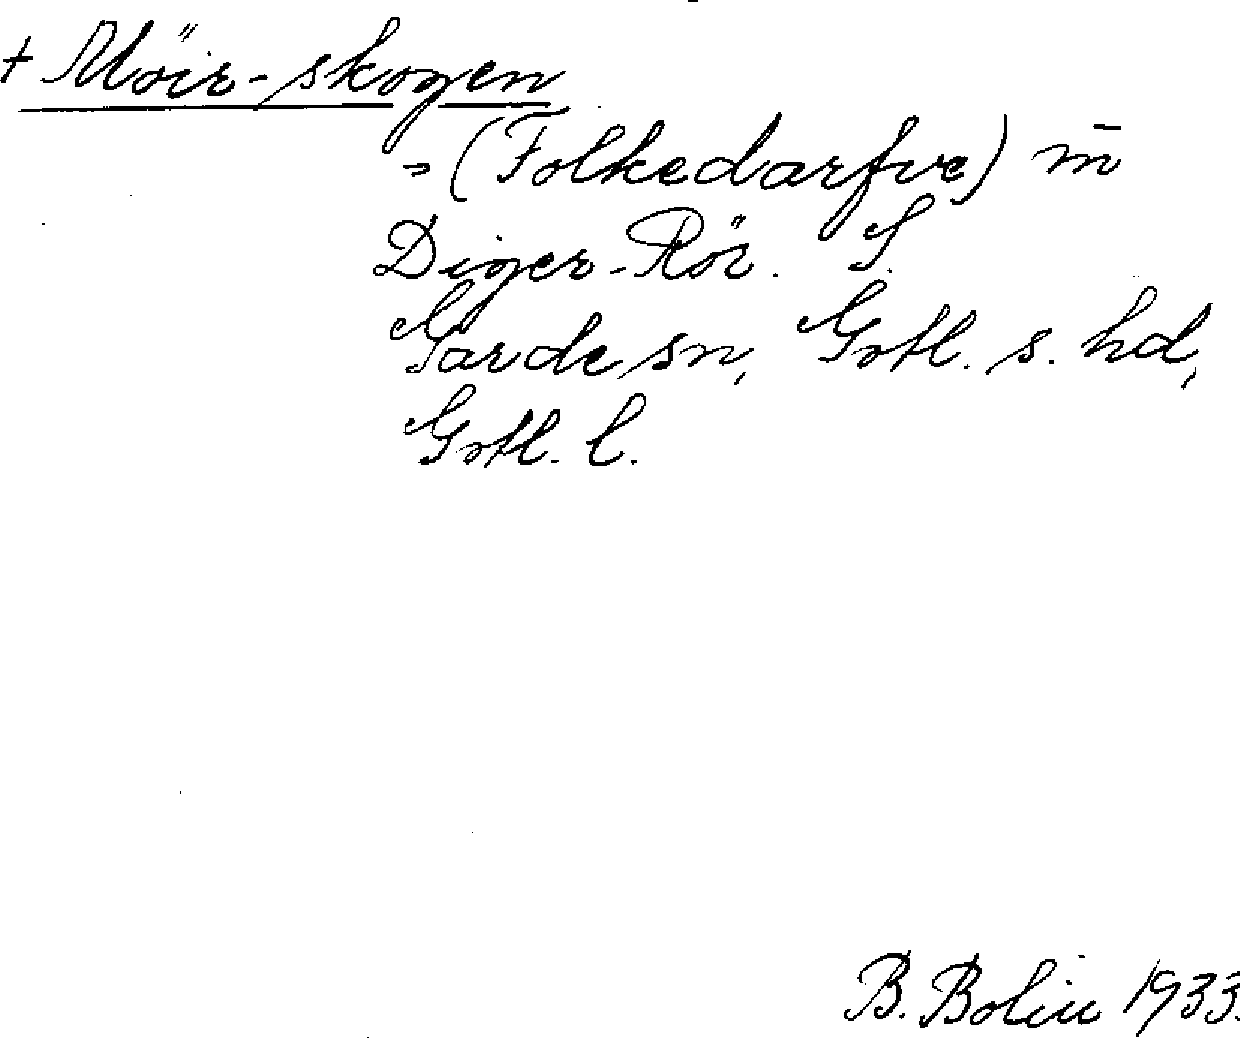 + Möir-skogen
= (Folkedarfve) m̄
Diger-Rör. S.
Garde sn, Gotl. s. hd,
Gotl. l.
B. Bolin 1933.